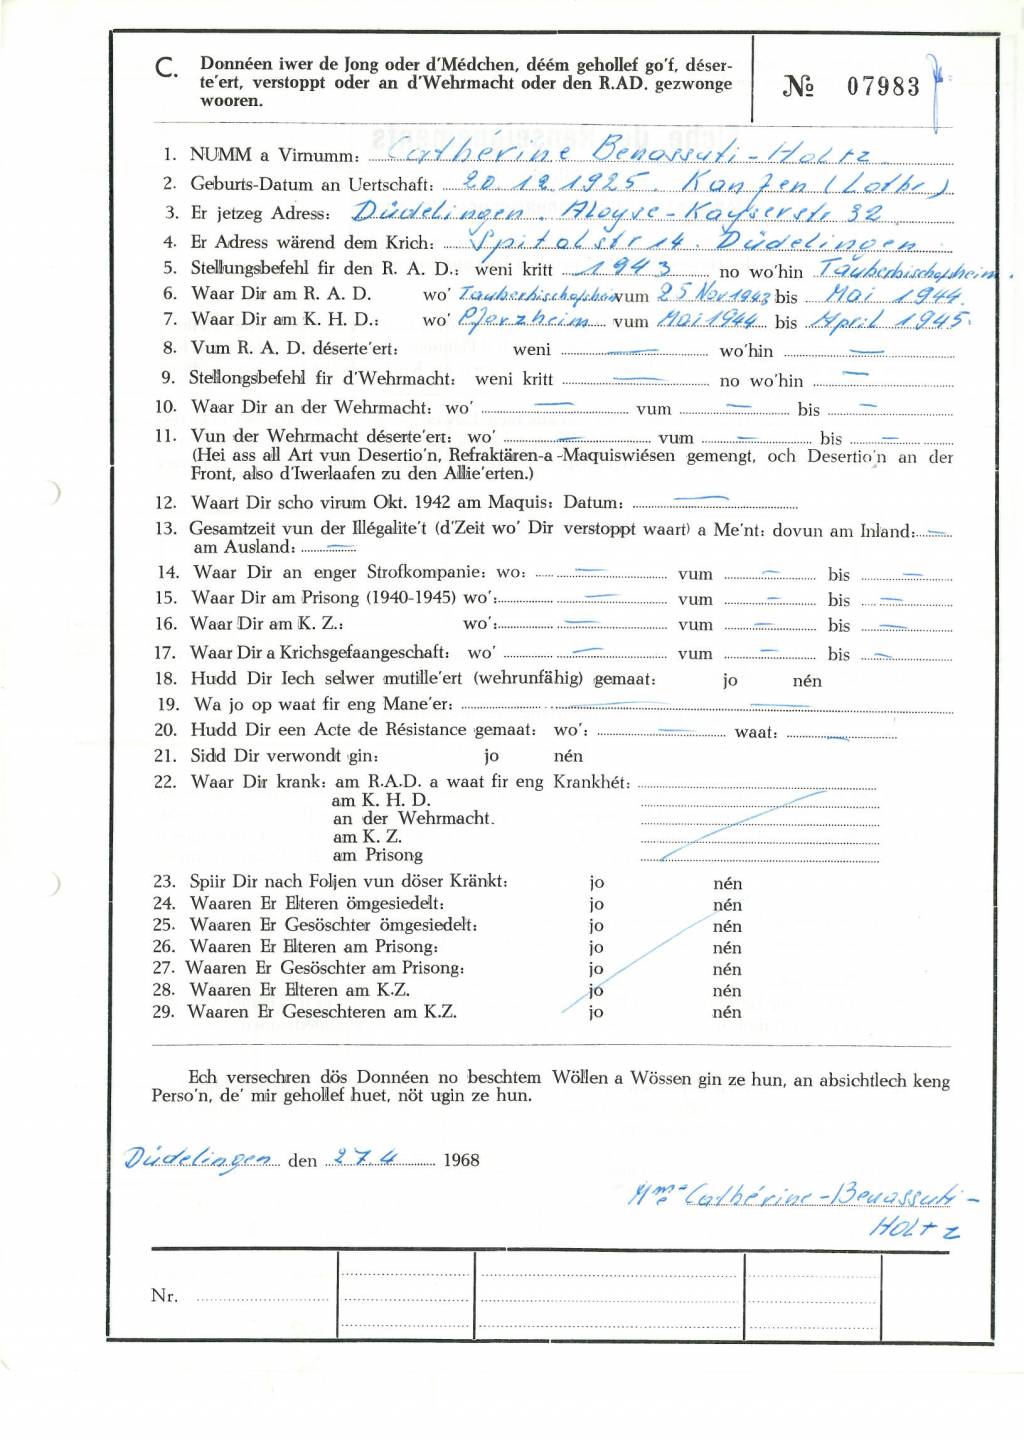 C. Donnéen iwer de Jong oder d'Médchen, déém gehollef go'f, déser-
te'ert, verstoppt oder an d'Wehrmacht oder den R.AD. gezwonge
wooren.
№ 07983
1. NUMM a Virnumm: Cathérine Benassuti-Holtz
2. Geburts-Datum an Uertschaft: 20.12.1925. Kanfen (Lothr)
3. Er jetzeg Adress: Düdelingen. Aloyse-Kayserstr 32
4. Er Adress wärend dem Krich: Spitalstr 14. Düdelingen
5. Stellungsbefehl fir den R. A. D.: weni kritt 1943 no wo'hin Tauberbischofsheim.
6. Waar Dir am R. A. D. wo' Tauberbischofsheim vum 25 Nov 1943 bis Mai 1944.
7. Waar Dir am K. H. D.: wo' Pforzheim vum Mai 1944 bis April 1945.
8. Vum R. A. D. déserte'ert: weni — wo'hin —
9. Stellongsbefehl fir d'Wehrmacht: weni kritt — no wo'hin —
10. Waar Dir an der Wehrmacht: wo' — vum — bis —
11. Vun der Wehrmacht déserte'ert: wo' — vum — bis —
(Hei ass all Art vun Desertio'n, Refraktären-a -Maquiswiésen gemengt, och Desertio'n an der
Front, also d'Iwerlaafen zu den Allie'erten.)
12. Waart Dir scho virum Okt. 1942 am Maquis: Datum: —
13. Gesamtzeit vun der Illégalite't (d'Zeit wo' Dir verstoppt waart) a Me'nt: dovun am Inland: —
am Ausland: —
14. Waar Dir an enger Strofkompanie: wo: — vum — bis —
15. Waar Dir am Prisong (1940-1945) wo': — vum — bis —
16. Waar Dir am K. Z.: wo': — vum — bis —
17. Waar Dir a Krichsgefaangeschaft: wo' — vum — bis —
18. Hudd Dir Iech selwer mutille'ert (wehrunfähig) gemaat: jo nén
19. Wa jo op waat fir eng Mane'er: — —
20. Hudd Dir een Acte de Résistance gemaat: wo': — waat: —
21. Sidd Dir verwondt gin: jo nén
22. Waar Dir krank: am R.A.D. a waat fir eng Krankhét:
am K. H. D.
an der Wehrmacht.
am K. Z.
am Prisong
23. Spiir Dir nach Foljen vun döser Kränkt: jo nén
24. Waaren Er Elteren ömgesiedelt: jo nén
25. Waaren Er Gesöschter ömgesiedelt: jo nén
26. Waaren Er Elteren am Prisong: jo nén
27. Waaren Er Gesöschter am Prisong: jo nén
28. Waaren Er Elteren am K.Z. jo nén
29. Waaren Er Geseschteren am K.Z. jo nén
Ech versechren dös Donnéen no beschtem Wöllen a Wössen gin ze hun, an absichtlech keng
Perso'n, de' mir gehollef huet, nöt ugin ze hun.
Düdelingen den 27.4 1968
Mme Cathérine-Benassuti-
Holtz
Nr.